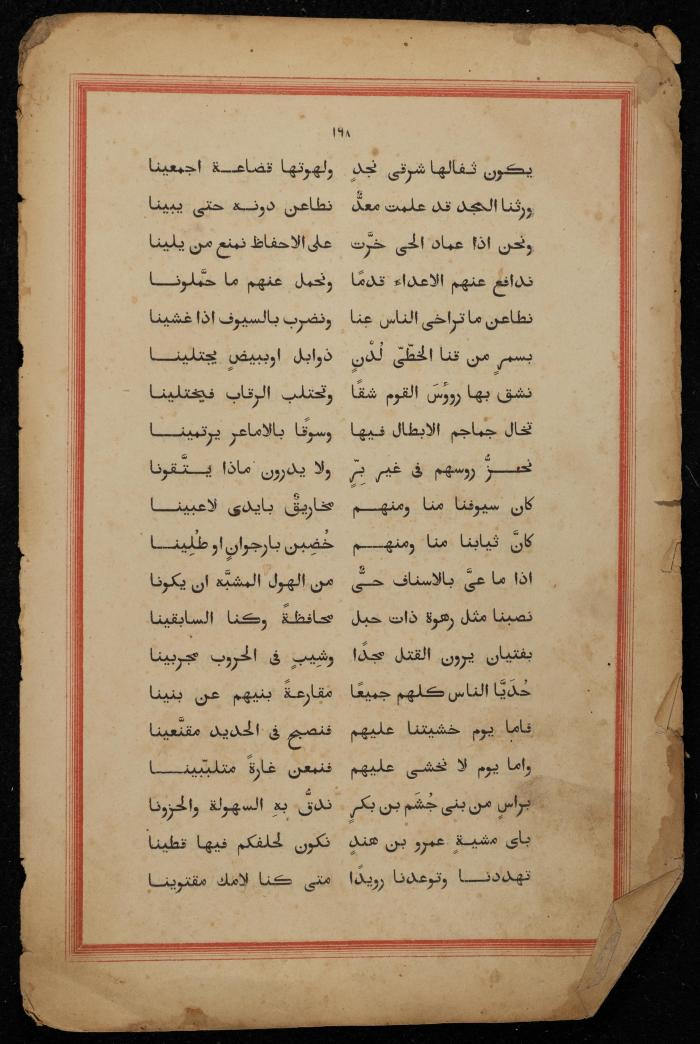 ١٦٨
يكون ثفالها شرقى نجدٍ ولهوتها قضاعـة اجمعينا
ورثنا المجد قد علمت معدٌّ نطاعن دونـه حتى يبينا
ونحن اذا عماد الحى خرَّت على الاحفاظ نمنع من يلينا
ندافع عنهم الاعداء قدمًا ونحمل عنهم ما حمَّلونـا
نطاعن ما تراخى الناس عنا ونضرب بالسيوف اذا غشينا
بسمرٍ من قنا الخطّىّ لُدْنٍ ذوابل اوببيضٍ يجتلينـا
نشق بها رووُسَ القوم شقًا وتحتلب الرقاب فيختلينا
تخال جماجم الابطال فيها وسوقًا بالاماعر يرتمينـا
نحـزُّ روسهم فى غير بِرّ ولا يدرون ماذا يـتَّقونا
كان سيوفنا منا ومنهـم مخاريقٌ بايدى لاعبينـا
كانَّ ثيابنا منا ومنهـم خُضِبن بارجوانٍ او طُلِينـا
اذا ما عىَّ بالاسناف حىٌّ من الهول المشبَّه ان يكونا
نصبنا مثل رهوة ذات حبل محافظةً وكنا السابقينا
بفتيان يرون القتل مجدًا وشِيبٍ فى الحروب مجربينا
حُدَيَّا الناس كلهم جميعًا مقارعةً بنيهم عن بنينا
فاما يوم خشيتنا عليهم فنصبح فى الحديد مقنَّعينا
واما يوم لا نخشى عليهم فنمعن غارةً متلببّينـا
براسٍ من بنى جُشَم بن بكرٍ ندقُّ بهِ السهولة والحزونا
باى مشيةٍ عمرو بن هندٍ نكون لخلفكم فيها قطينا
تهددنـا وتوعدنا رويدًا متى كنا لامك مقتوينـا